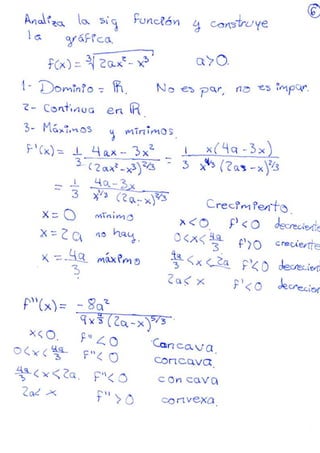 6
Analiza la sig función y construye
la gráfica.
f(x) = ∛(2ax² - x³)    a>0.
1- Dominio = ℝ. No es par, no es impar.
2- Continua en ℝ
3- Máximos y mínimos
f'(x) = 1/3 (4ax - 3x²)/(2ax² - x³)^2/3 = 1/3 x(4a - 3x)/(x^4/3 (2a - x)^2/3)
= 1/3 (4a - 3x)/(x^1/3 (2a - x)^2/3)
Crecimiento.
x = 0 mínimo    x < 0. f' < 0 decreciente
x = 2a no hay.    0 < x < 4a/3 f' > 0 creciente
x = 4a/3 máximo    4a/3 < x < 2a f' < 0 decrecien
2a < x f' < 0 decrecien
f''(x) = - 8a²/(9x^4/3 (2a - x)^5/3)
x < 0. f'' < 0 Concava.
0 < x < 4a/3 f'' < 0 concava.
4a/3 < x < 2a. f'' < 0 concava
2a < x f'' > 0 convexa.